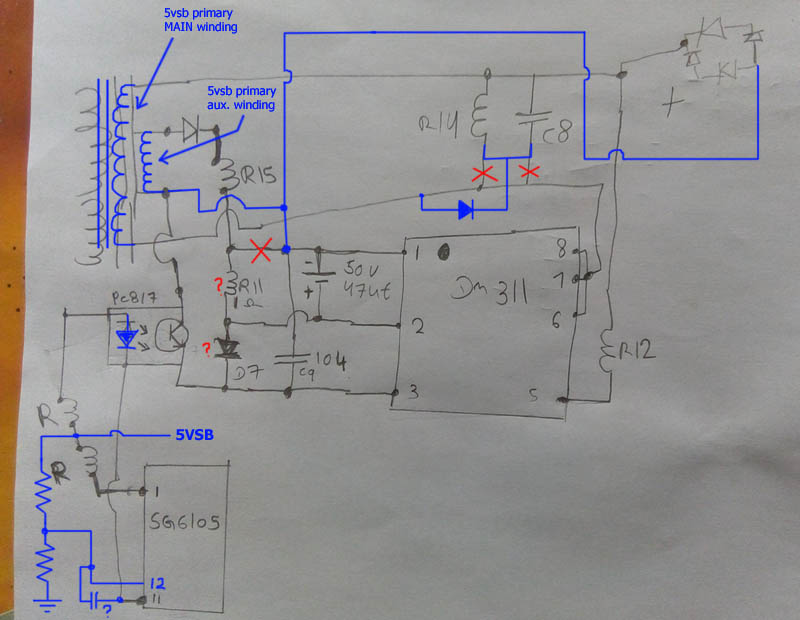 5vsb primary
MAIN winding
5vsb primary
aux. winding
R14
C8
+
R15
1
8
-
50V
47uf
+
Dm311
7
?
R11
1Ω
6
Pc817
K
2
?
D7
104
C9
R12
3
5
R
5VSB
R
1
SG6105
12
11
?